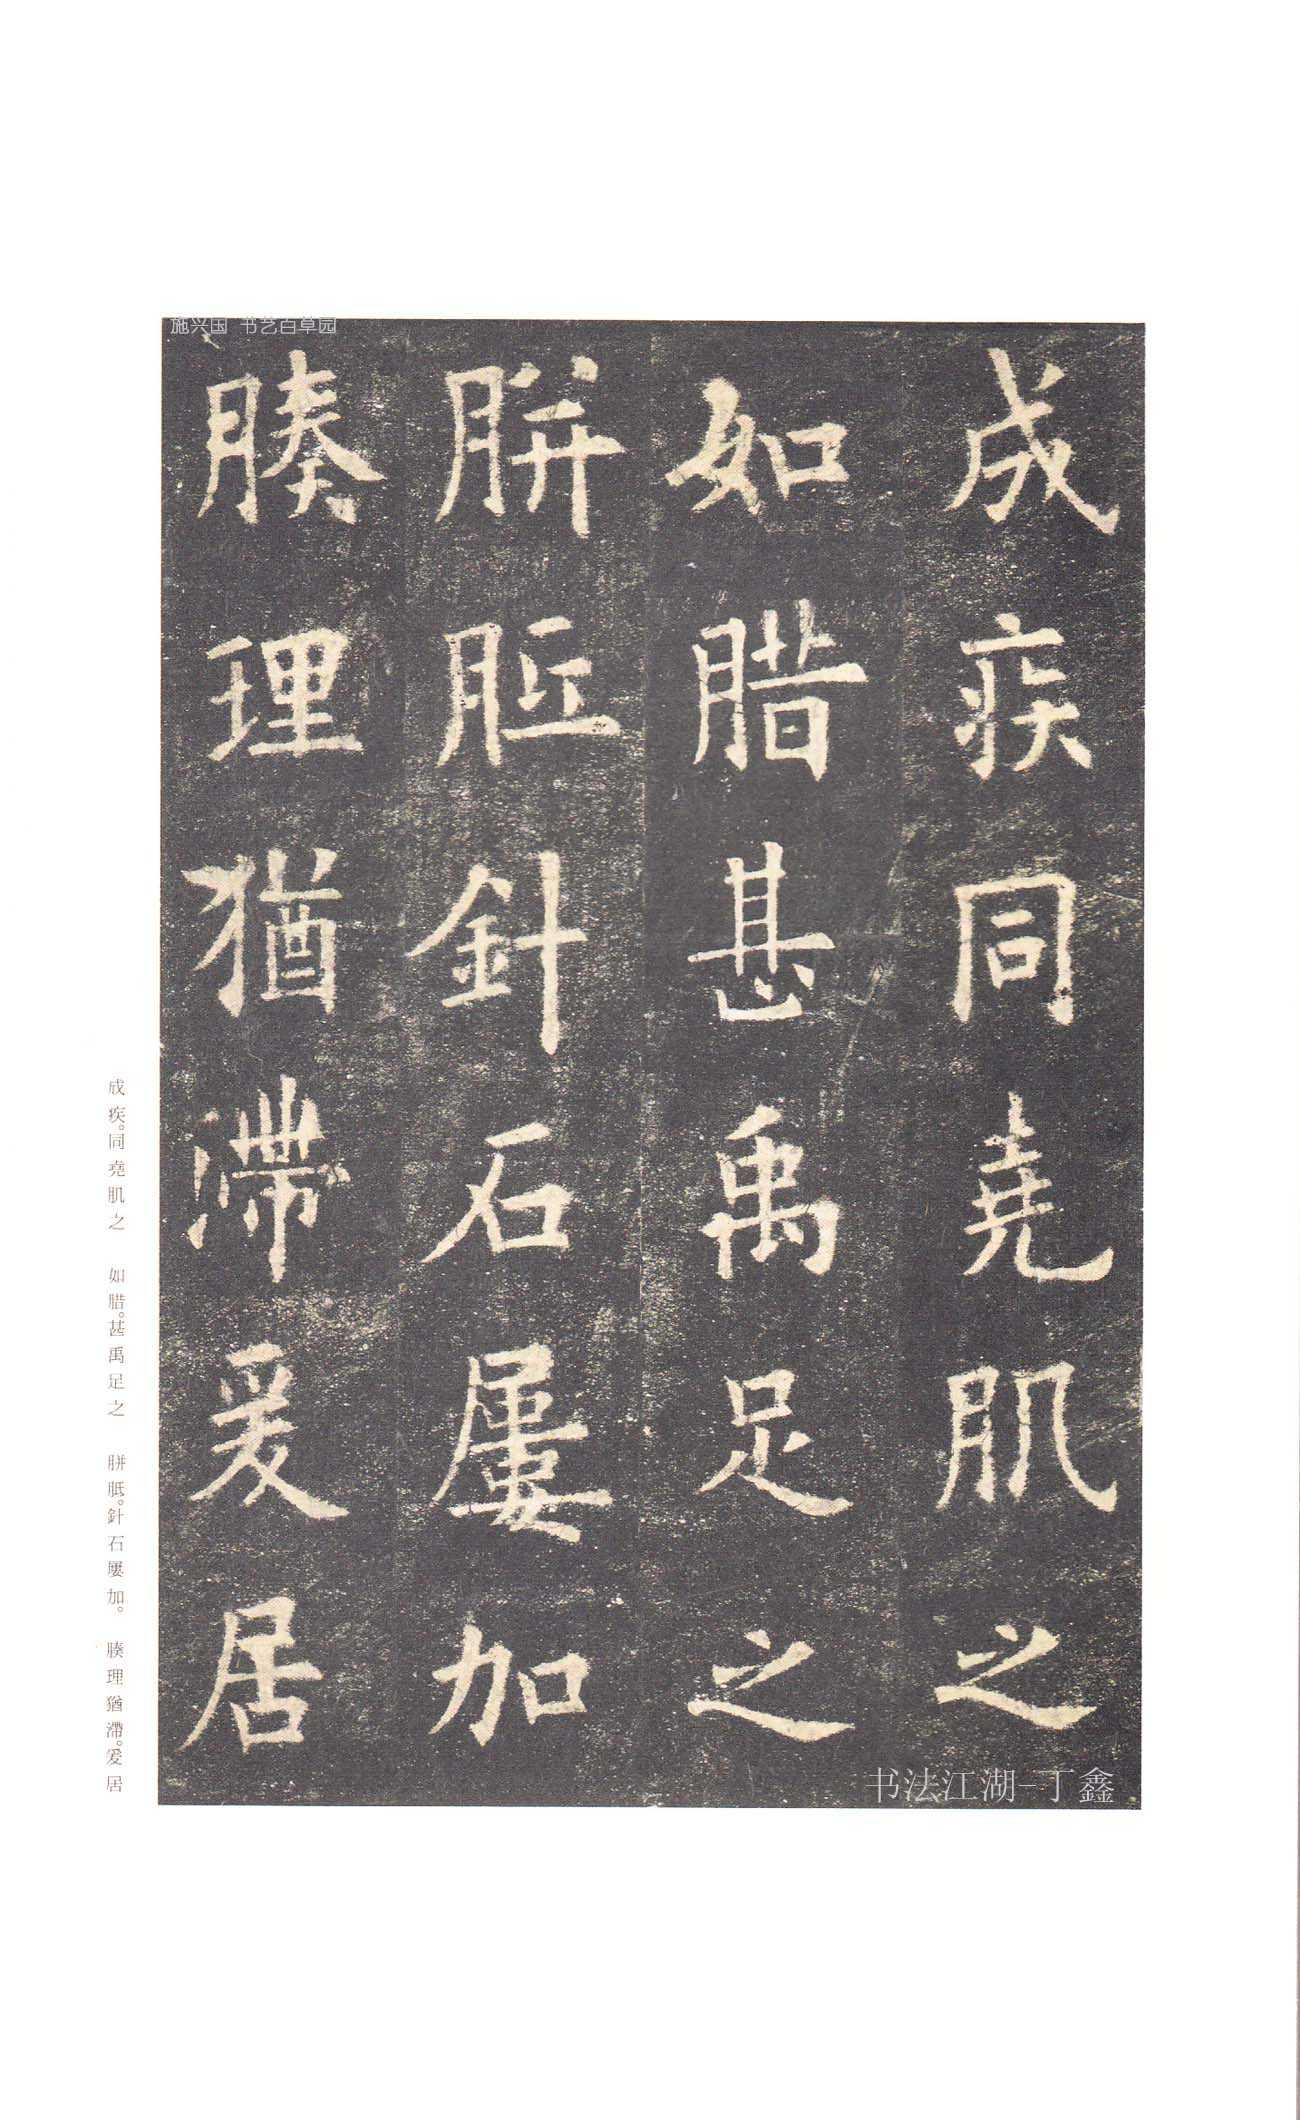 施兴国 书艺百草园
成疾同堯肌之
如腊甚禹足之
胼胝針石屢加
腠理猶滯爰居
书法江湖-丁鑫
成疾。同堯肌之 如腊。甚禹足之 胼胝。針石屢加。 腠理猶滯。爰居